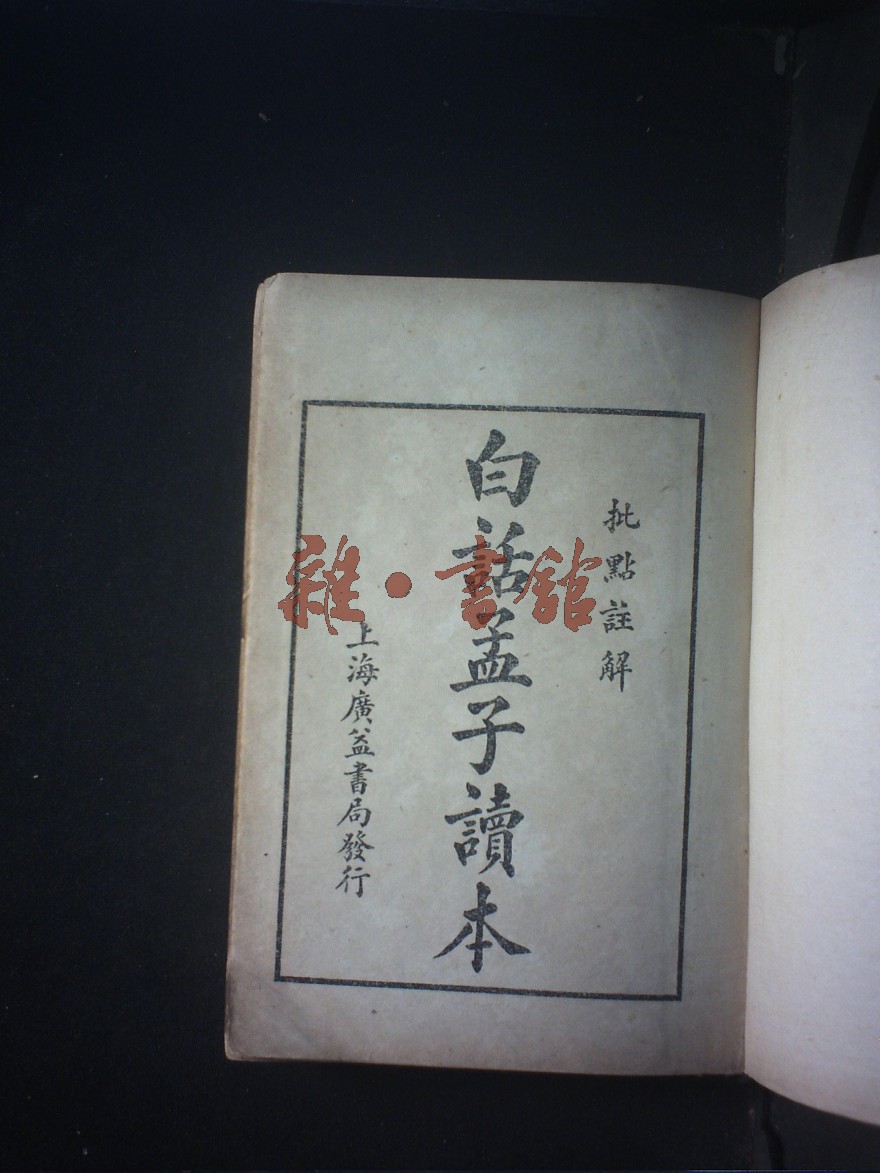 批點註解
白話孟子讀本
上海廣益書局發行
雜·書館